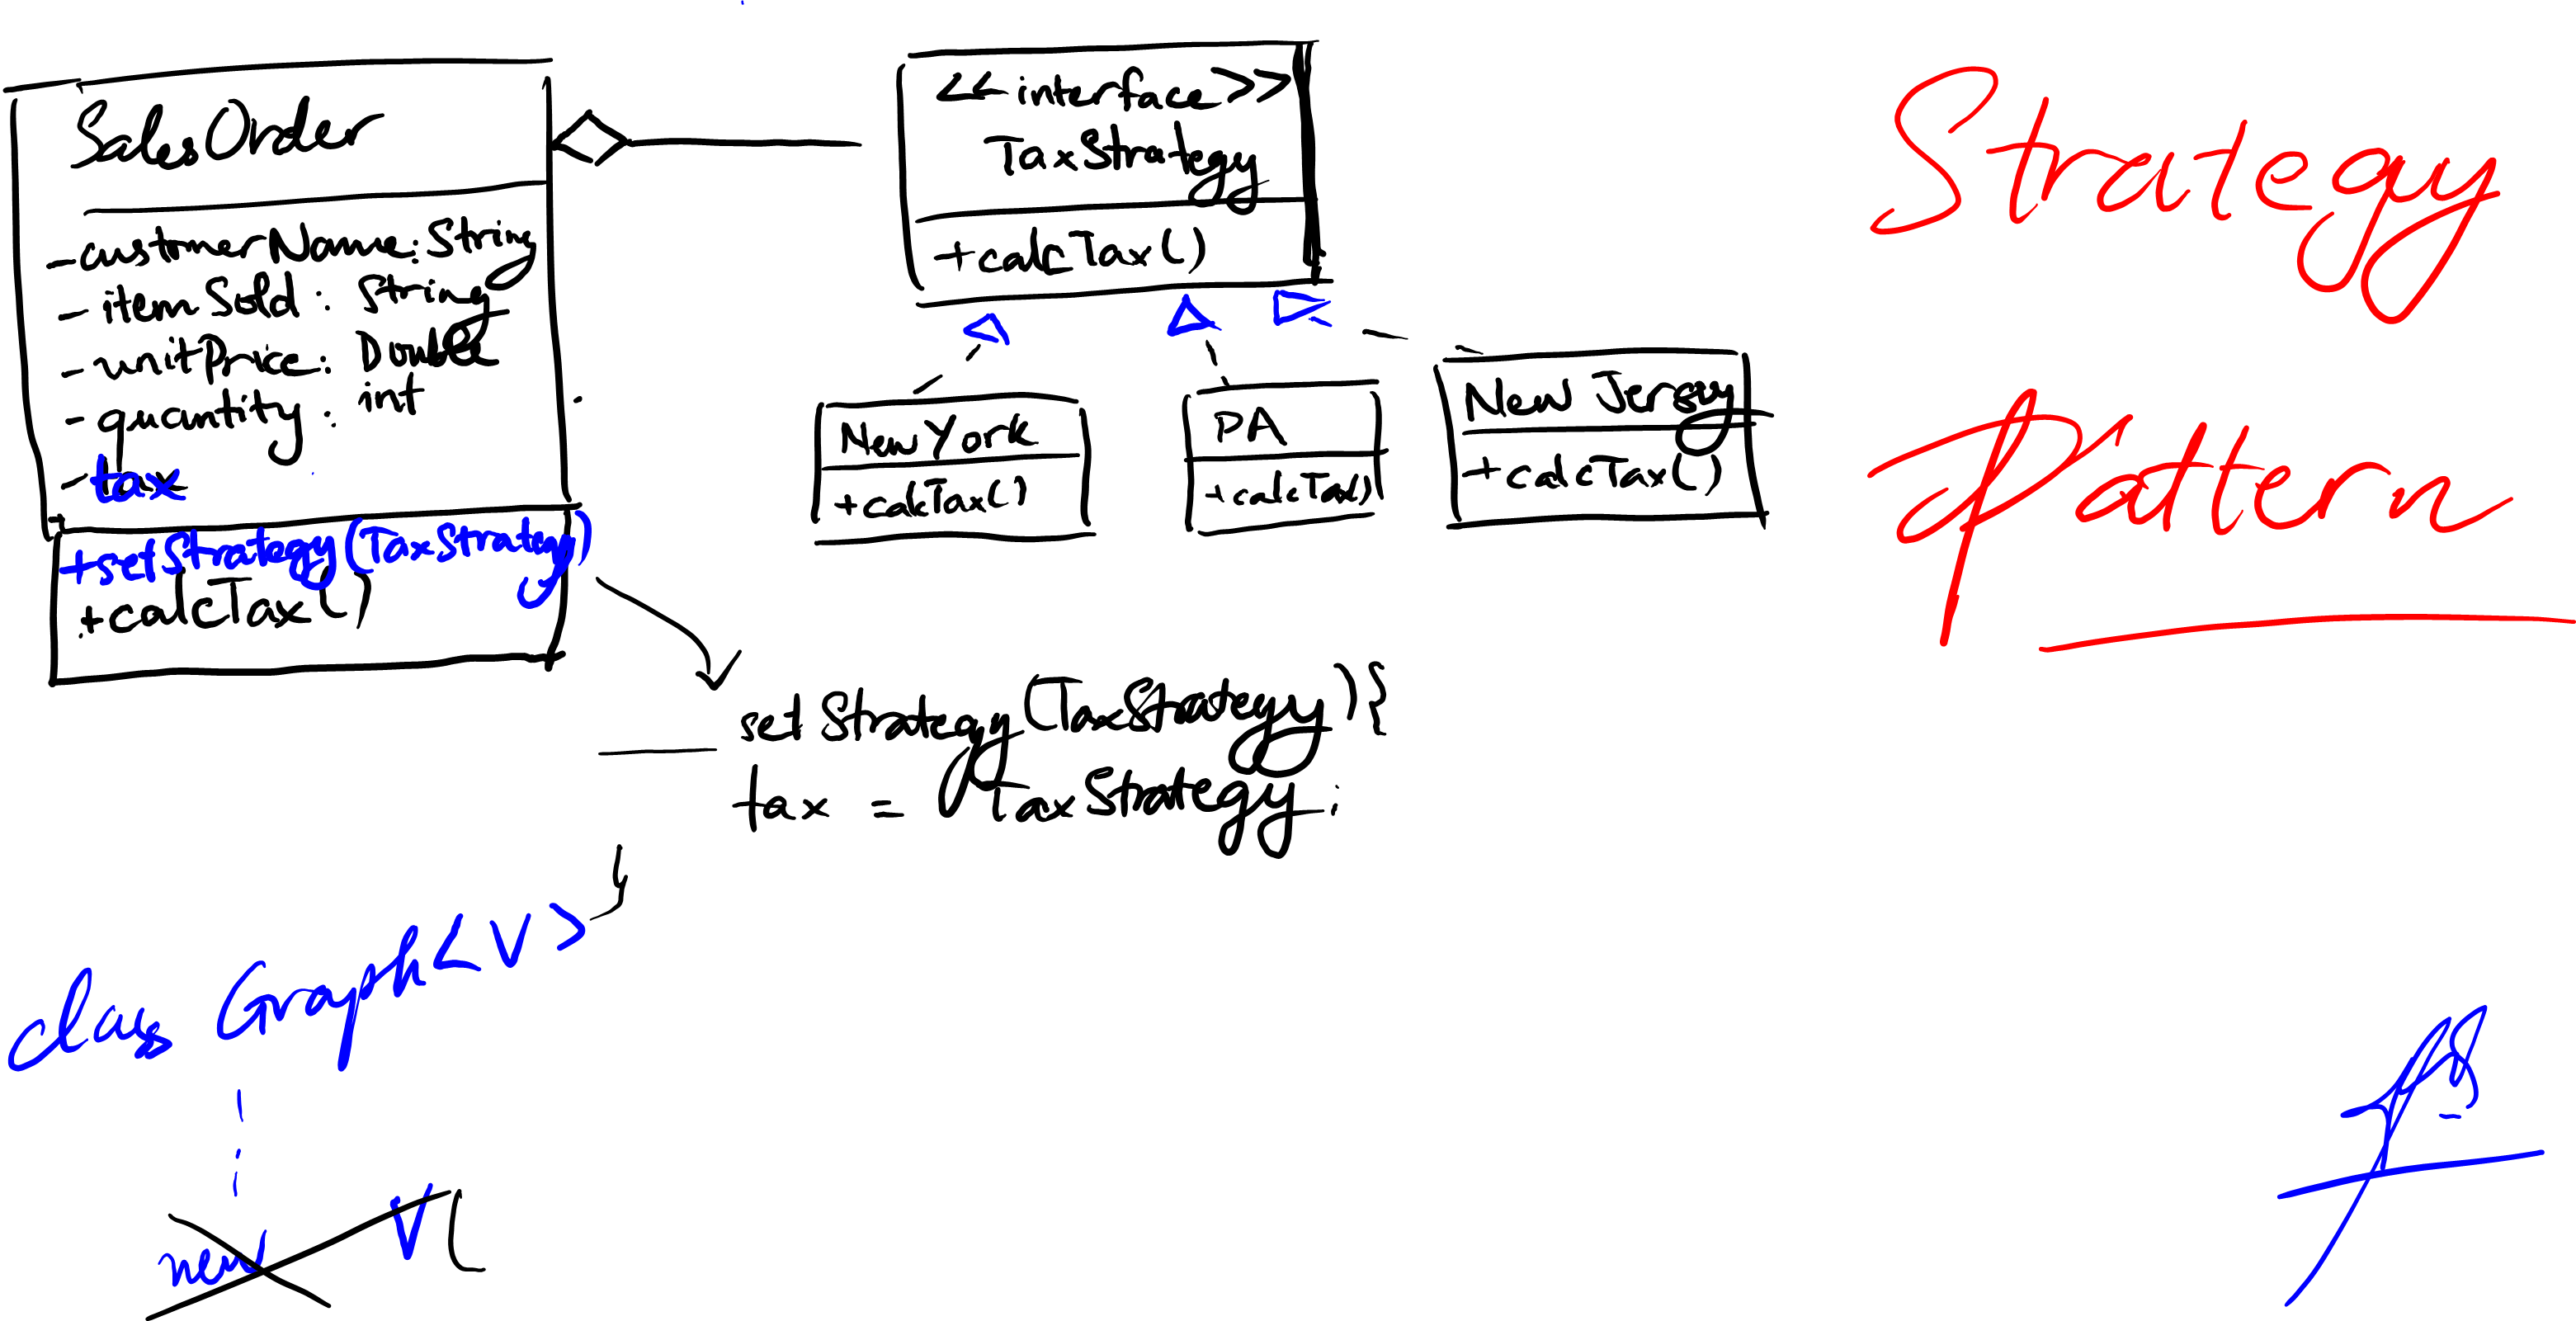 SalesOrder
-customerName: String
-itemSold: String
-unitPrice: Double
-quantity: int
-tax
+setStrategy(TaxStrategy)
+calcTax()
<<interface>>
TaxStrategy
+calcTax()
New York
+calcTax()
PA
+calcTax()
New Jersey
+calcTax()
Strategy
Pattern
setStrategy(TaxStrategy){
tax = TaxStrategy;
class Graph<V>
new V(